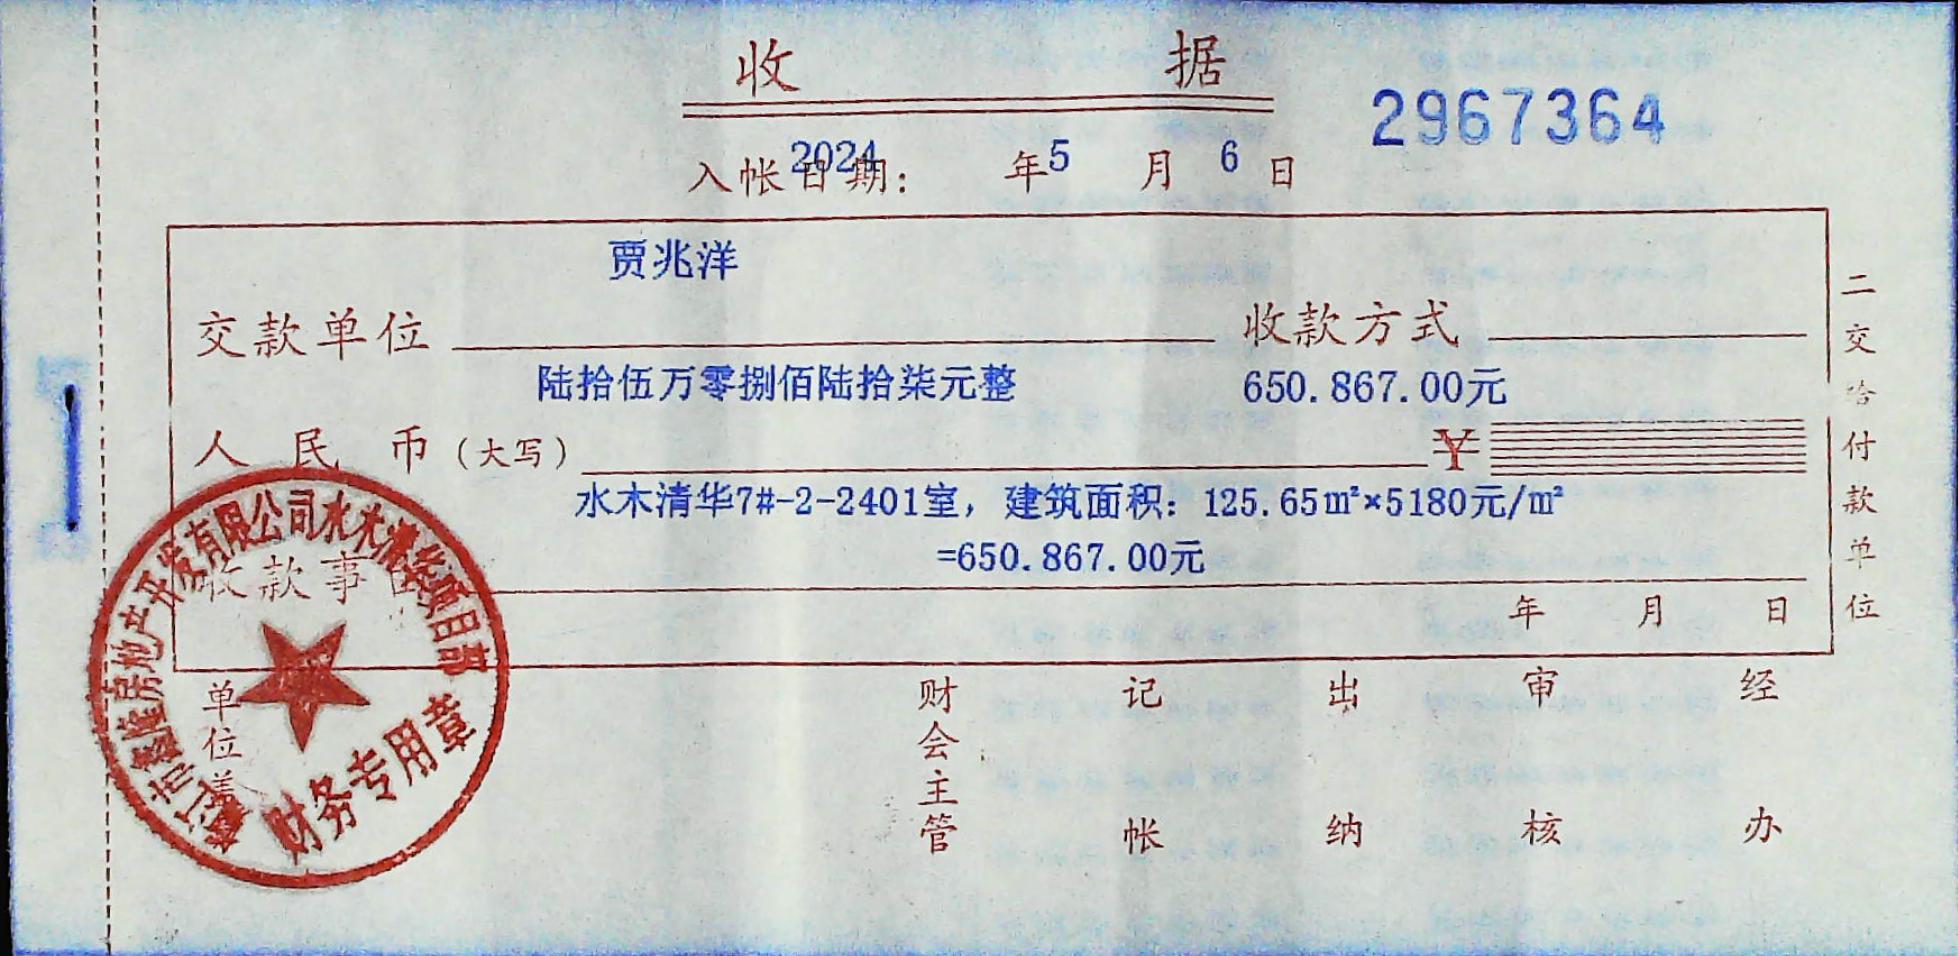 收 据
2967364
入帐日期： 2024 年 5 月 6 日
贾兆洋
交款单位 收款方式
陆拾伍万零捌佰陆拾柒元整 650.867.00元
人民币（大写） ¥
水木清华7#-2-2401室，建筑面积：125.65㎡×5180元/㎡
=650.867.00元
收款事由
年 月 日
二交给付款单位
单位盖
财会主管 记帐 出纳 审核 经办
房地产开发有限公司水木清华项目部
财务专用章